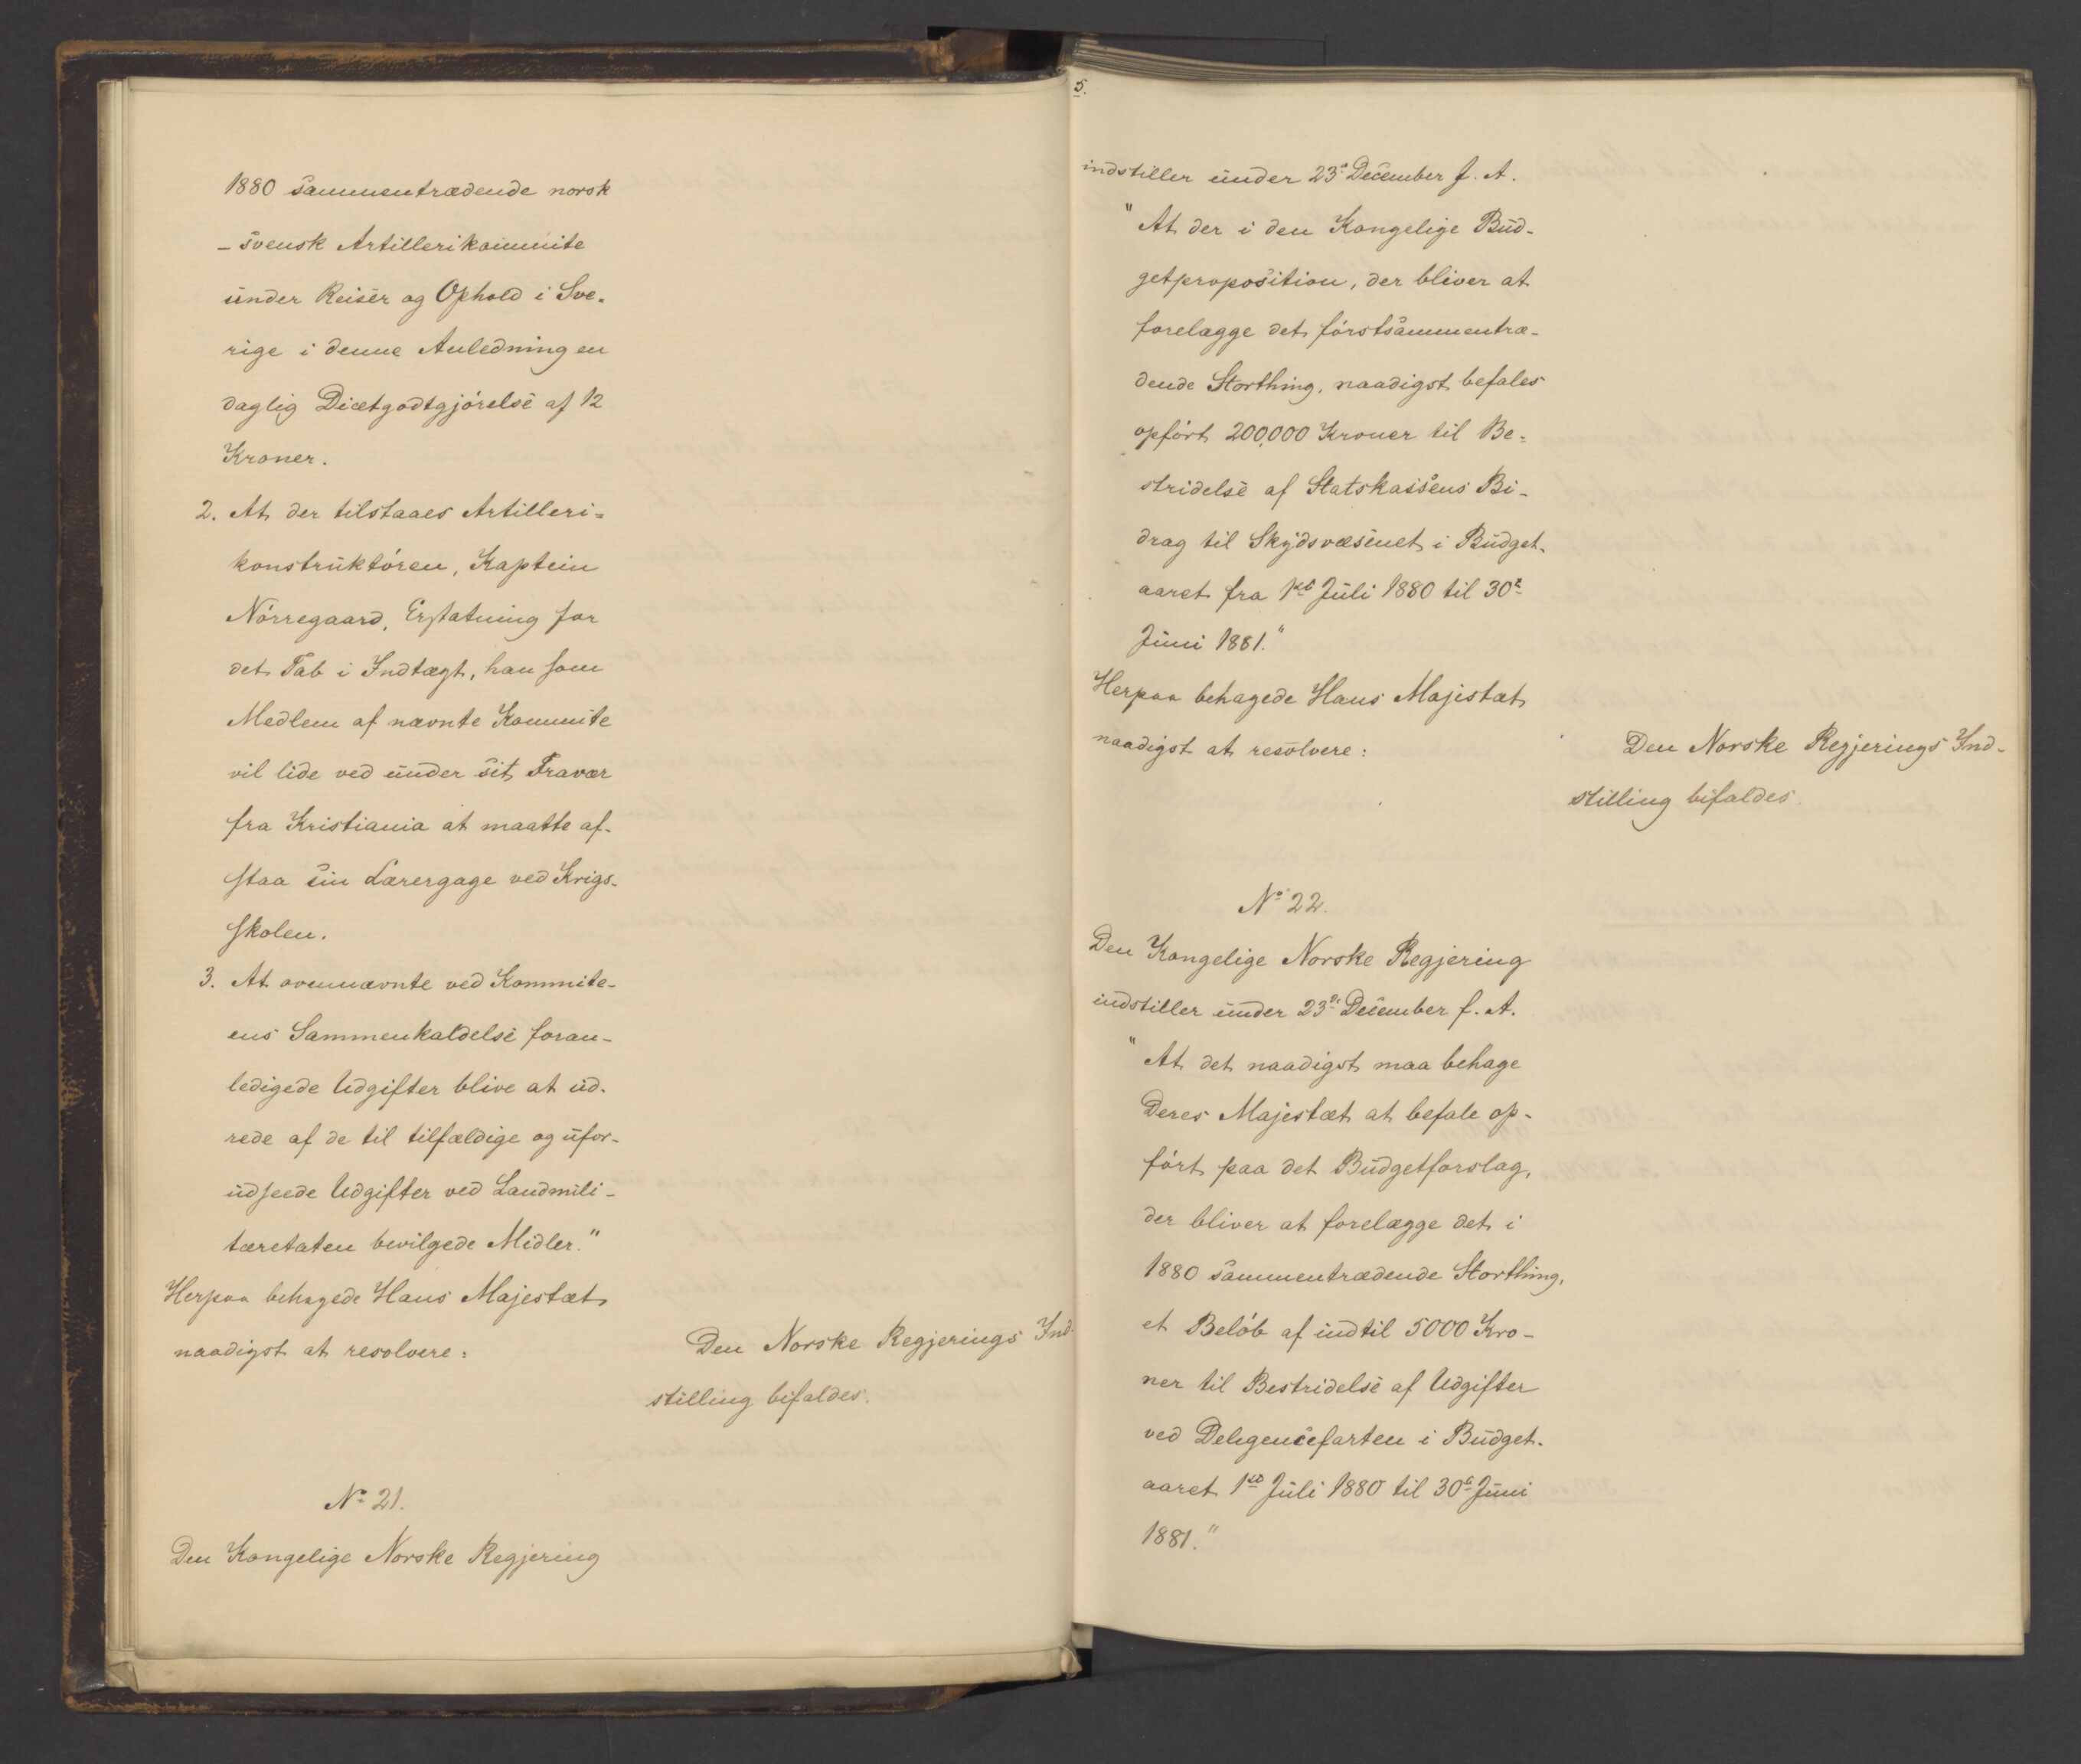 1880 sammentrædende norsk
- svensk Artillerikommite
under Reiser og Ophold i Sve-
rige i denne Anledning en
daglig Diætgodtgjörelse af 12
Kroner.
2. At der tilstaaes Artilleri-
konstruktören, Kaptein
Nörregaard, Erstatning for
det Tab i Indtægt, han som
Medlem af nævnte Kommite
vil lide ved under sit Fravær
fra Kristiania at maatte af-
staa sin Lærergage ved Krigs-
skolen.
3. At ovennævnte ved Kommite-
ens Sammenkaldelse foran-
ledigede Udgifter blive at ud-
rede af de til tilfældige og ufor-
udseede Udgifter ved Landmili-
tæretaten bevilgede Midler."
Herpaa behagede Hans Majestæt
naadigst at resolvere:
Den Norske Regjerings Ind-
stilling bifaldes.
No 21.
Den Kongelige Norske Regjering
5.
indstiller under 23de December f. A.
"At der i den Kongelige Bud-
getproposition, der bliver at
forelægge det förstsammentræ-
dende Storthing, naadigst befales
opfört 200,000 Kroner til Be-
stridelse af Statskassens Bi-
drag til Skydsvæsenet i Budget-
aaret fra 1ste Juli 1880 til 30te
Juni 1881."
Herpaa behagede Hans Majestæt
naadigst at resolvere:
Den Norske Regjerings Ind-
stilling bifaldes.
No 22.
Den Kongelige Norske Regjering
indstiller under 23de December f. A.
"At det naadigst maa behage
Deres Majestæt at befale op-
fört paa det Budgetforslag,
der bliver at forelægge det i
1880 sammentrædende Storthing,
et Belöb af indtil 5000 Kro-
ner til Bestridelse af Udgifter
ved Deligencefarten i Budget-
aaret 1ste Juli 1880 til 30te Juni
1881."